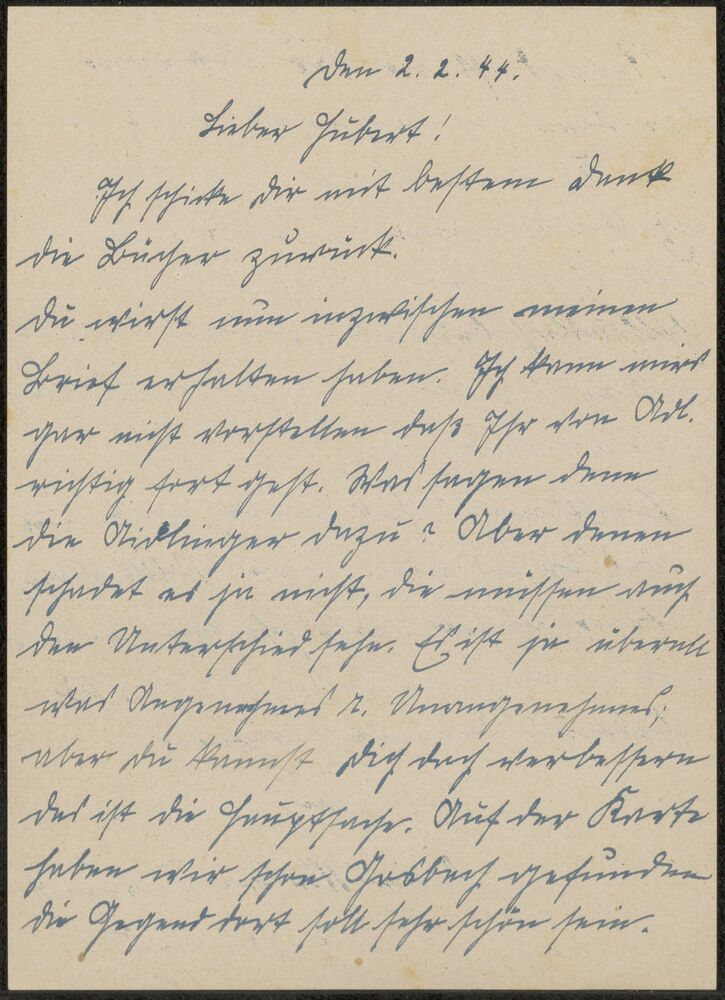 Den 2. 2. 44.
Lieber Hubert!
Ich schicke dir mit bestem Dank
die Bücher zurück.
Du wirst nun inzwischen meinen
Brief erhalten haben. Ich kann mirs
gar nicht vorstellen daß Ihr von Aidl.
richtig fort geht. Was sagen denn
die Aidlinger dazu? Aber denen
schadet es ja nicht, die müssen auch
den Unterschied sehn. Es ist ja überall
was Angenehmes u. Unangenehmes;
aber du kannst dich doch verbessern
das ist die Hauptsache. Auf der Karte
haben wir schon Gosbach gefunden
die Gegend dort soll sehr schön sein.